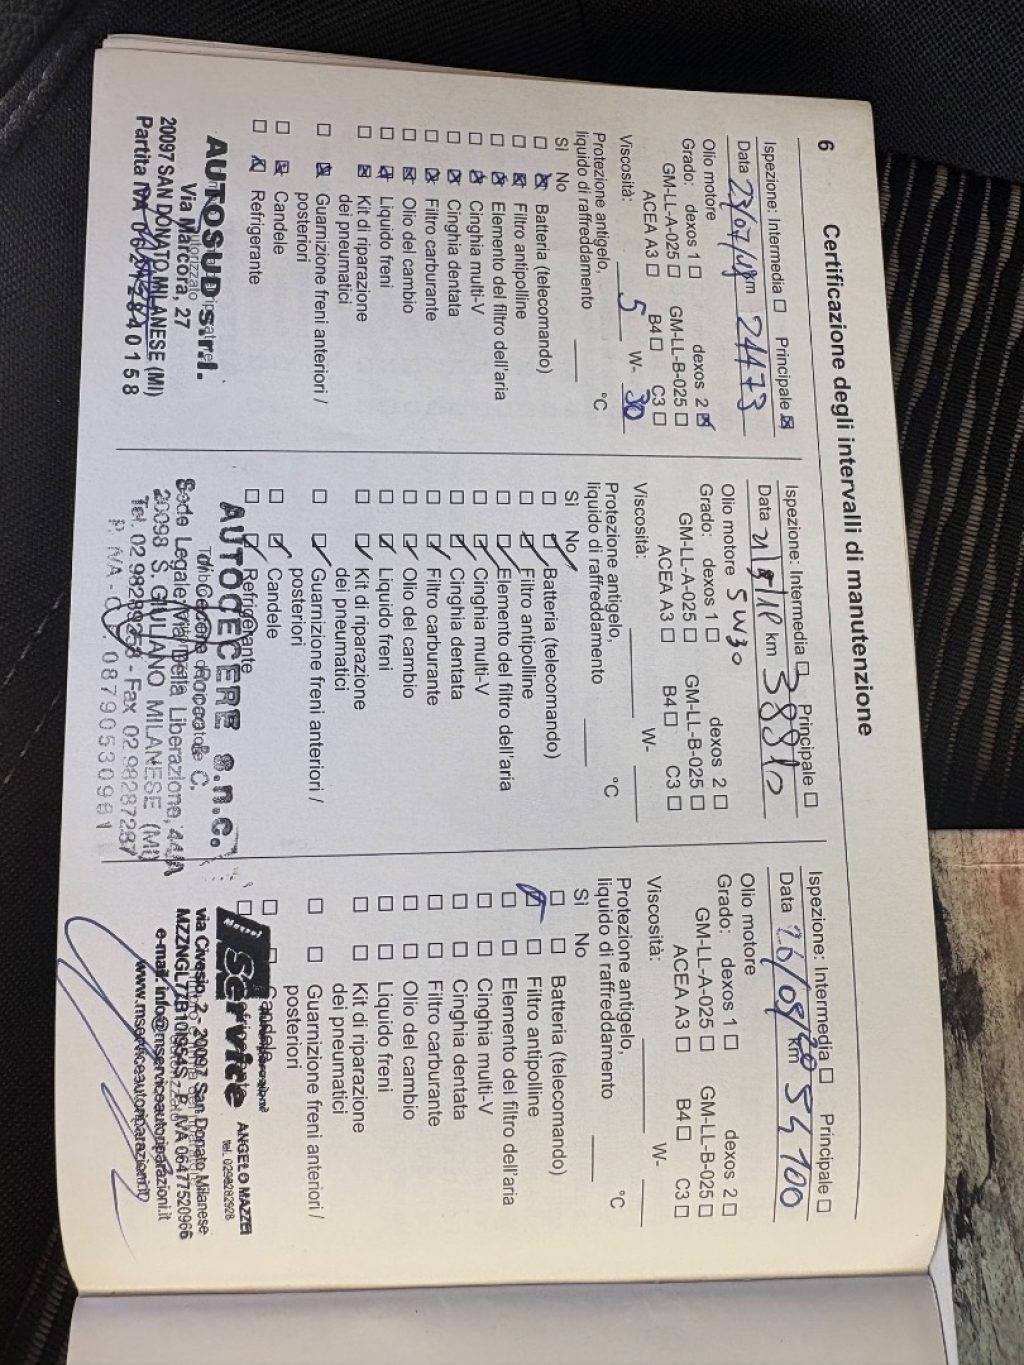 6
Certificazione degli intervalli di manutenzione
Ispezione: Intermedia ☐ Principale ☒
Data 23/07/ km 24473
Olio motore
Grado: dexos 1 ☐ dexos 2 ☒
GM-LL-A-025 ☐ GM-LL-B-025 ☐
ACEA A3 ☐ B4 ☐ C3 ☐
Viscosità: 5 W- 30
Protezione antigelo,
liquido di raffreddamento °C
Sì No
☐ ☒ Batteria (telecomando)
☐ ☒ Filtro antipolline
☐ ☒ Elemento del filtro dell'aria
☐ ☒ Cinghia multi-V
☐ ☒ Cinghia dentata
☐ ☒ Filtro carburante
☐ ☒ Olio del cambio
☐ ☒ Liquido freni
☐ ☒ Kit di riparazione
dei pneumatici
☐ ☒ Guarnizione freni anteriori /
posteriori
☐ ☒ Candele
☐ ☒ Refrigerante
AUTOSUD s.r.l.
Via Marcora, 27
20097 SAN DONATO MILANESE (MI)
Partita IVA 06212840158
Ispezione: Intermedia ☐ Principale ☐
Data km 38810
Olio motore 5W30
Grado: dexos 1 ☐ dexos 2 ☐
GM-LL-A-025 ☐ GM-LL-B-025 ☐
ACEA A3 ☐ B4 ☐ C3 ☐
Viscosità: W-
Protezione antigelo,
liquido di raffreddamento °C
Sì No
☐ ☑ Batteria (telecomando)
☐ ☑ Filtro antipolline
☐ ☑ Elemento del filtro dell'aria
☐ ☑ Cinghia multi-V
☐ ☑ Cinghia dentata
☐ ☑ Filtro carburante
☐ ☑ Olio del cambio
☐ ☑ Liquido freni
☐ ☑ Kit di riparazione
dei pneumatici
☐ ☑ Guarnizione freni anteriori /
posteriori
☐ ☑ Candele
☐ ☑ Refrigerante
AUTOCECERE s.n.c.
Sede Legale: Via Della Liberazione, 44/A
20098 S. GIULIANO MILANESE (MI)
Tel. 02 - Fax 02.98287287
P. IVA 08790530961
Ispezione: Intermedia ☐ Principale ☐
Data 26/09/20 km 54100
Olio motore
Grado: dexos 1 ☐ dexos 2 ☐
GM-LL-A-025 ☐ GM-LL-B-025 ☐
ACEA A3 ☐ B4 ☐ C3 ☐
Viscosità: W-
Protezione antigelo,
liquido di raffreddamento °C
Sì No
☐ ☐ Batteria (telecomando)
☑ ☐ Filtro antipolline
☐ ☐ Elemento del filtro dell'aria
☐ ☐ Cinghia multi-V
☐ ☐ Cinghia dentata
☐ ☐ Filtro carburante
☐ ☐ Olio del cambio
☐ ☐ Liquido freni
☐ ☐ Kit di riparazione
dei pneumatici
☐ ☐ Guarnizione freni anteriori /
posteriori
☐ ☐ Candele
Service
ANGELO MAZZEI
tel. 0298282928
via Civesio, 2 - 20097 San Donato Milanese
MZZNGL77B10I954S P. IVA 06477520966
e-mail: info@mserviceautoriparazioni.it
www.mserviceautoriparazioni.it